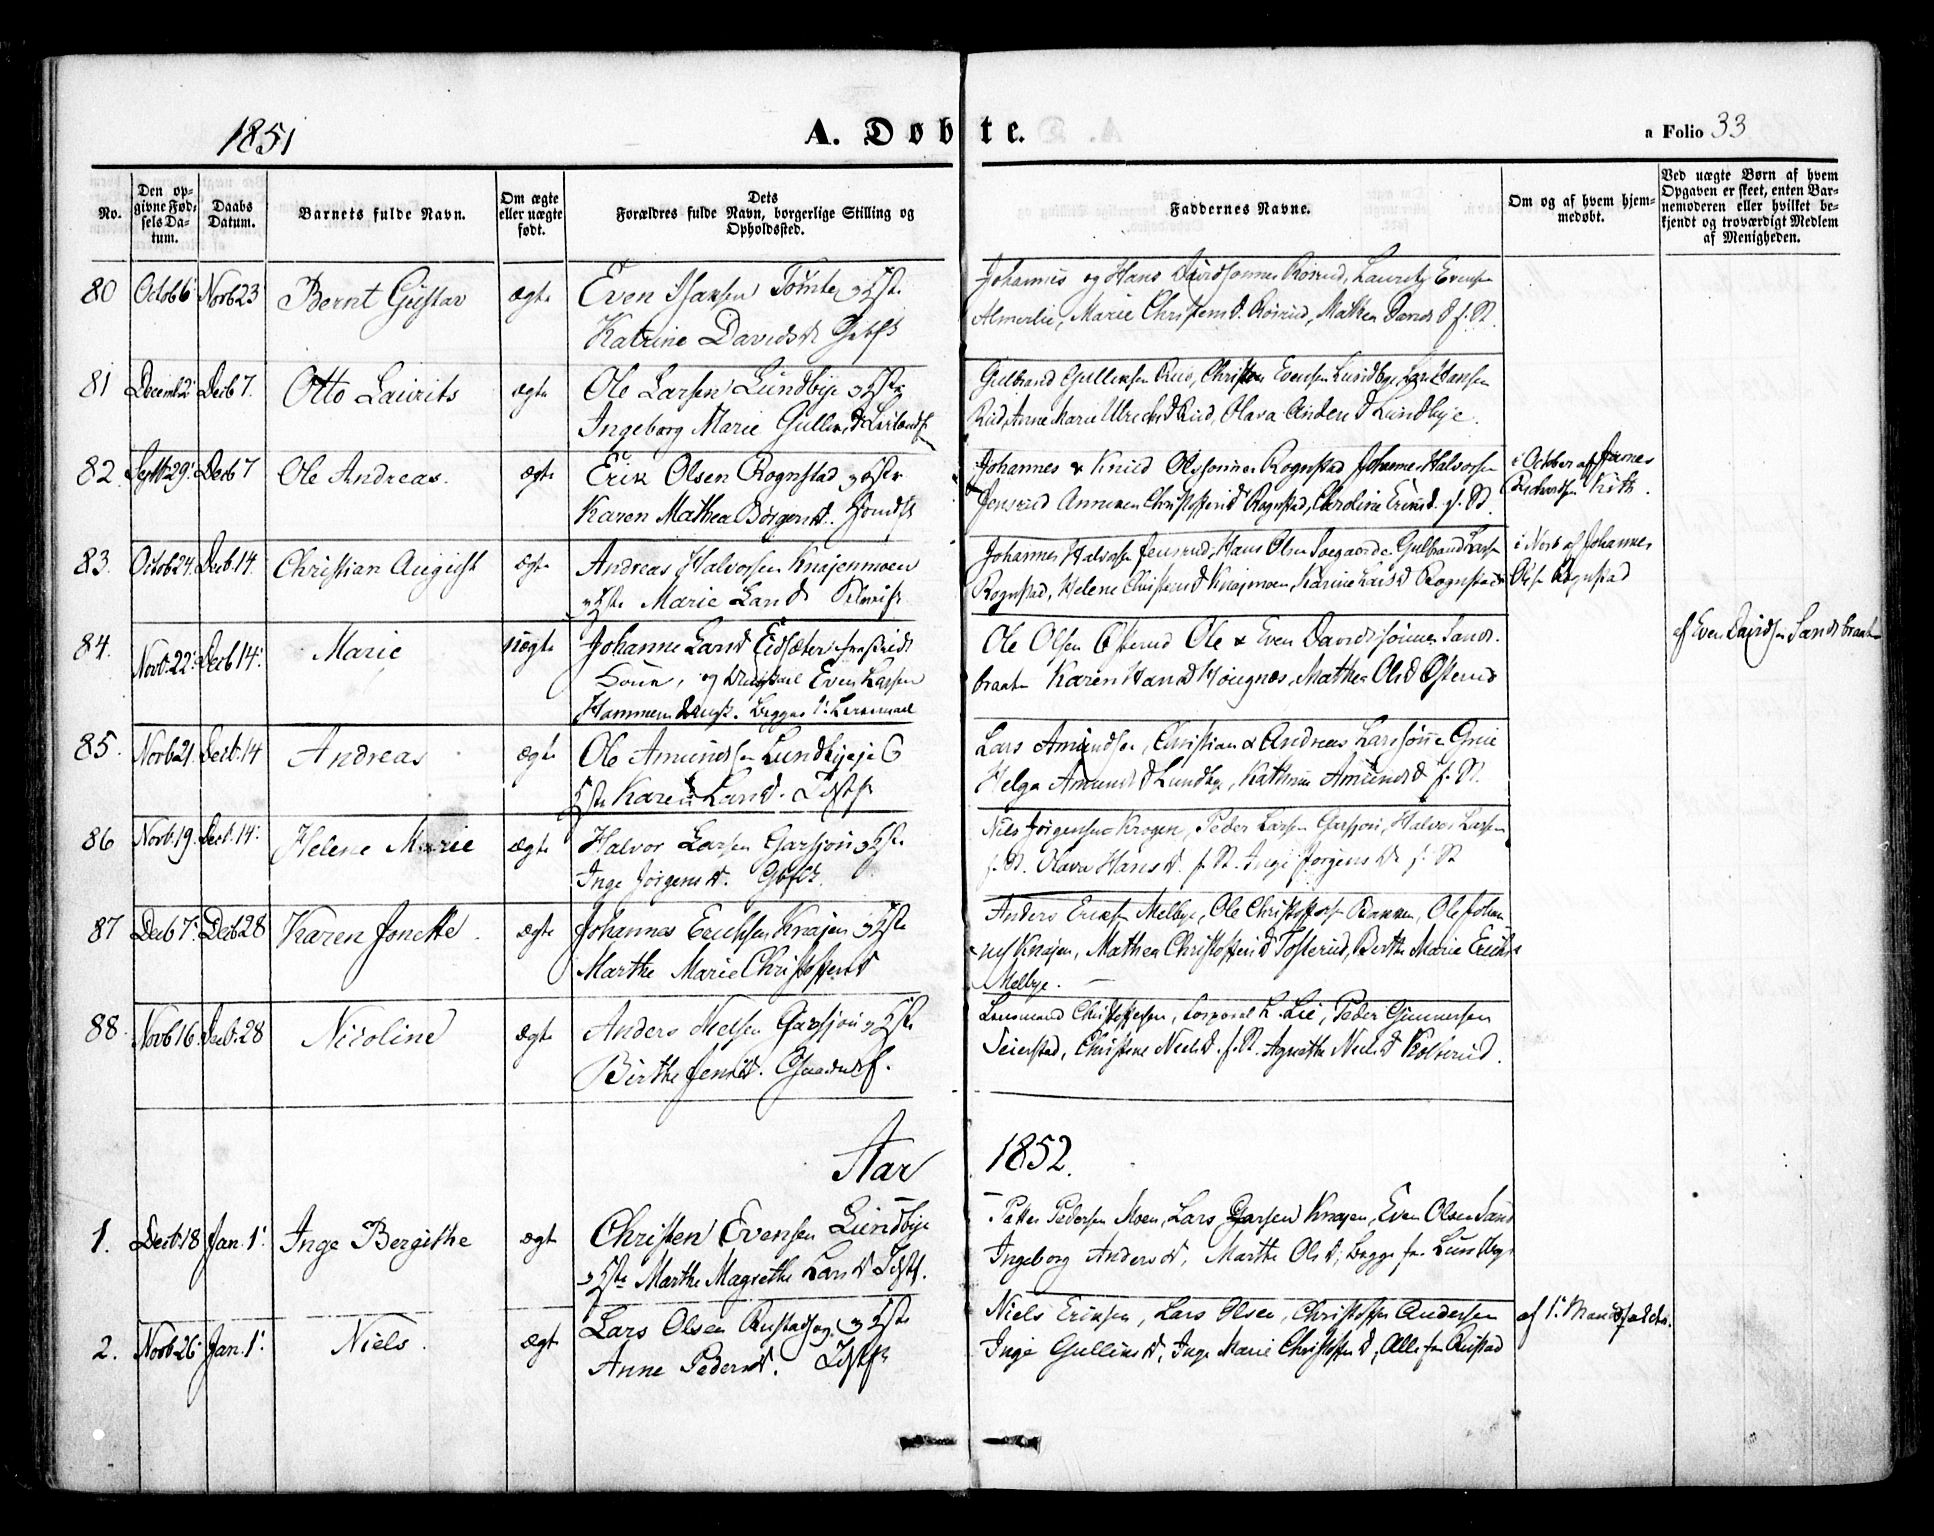 1851
A. Døbte.
a Folio 33
No.
Den op-
givne Fød-
sels Da-
tum.
Daabs
Datum.
Barnets fulde Navn.
Om ægte
eller uægte
født.
Dets
Forældres fulde Navn, borgerlige Stilling og
Opholdssted.
Faddernes Navne.
Om og af hvem hjem-
medøbt.
Ved uægte Børn af hvem
Opgaven er skeet, enten Bar-
nemoderen eller hvilket be-
kjendt og troværdigt Medlem
af Menigheden.
80 Octob 6 Novb 23 Bernt Gustav ægte Even Isaksen Tømte
Katrine Davidsd
Johannes og Hans Davidsønner Rørud, Lauritz Evensen
Almerlie, Marie Christensd. Rørud, Mathea Davidsd f. St.
81 Decemb 2 Decb 7. Otto Laurits ægte Ole Larsen Lundbye
Ingeborg Marie
Gulbrand Gulliksen Rud, Christen Evensen Lundbye, Lars Hansen
Rud, Anne Marie Ulriksd Rud, Olava Andersd Lundbye.
82 Septb 29 Decb 7 Ole Andreas. ægte Erik Olsen Rognstad
Karen Mathea Børgersd.
Johannes & Knud Olssønner Rognstad Johannes Halvorsen
Jensrud Christoffersd Rognstad, Caroline Eriksd. f. St.
i October af
83. Octob 24. Decb. 14. Christian August ægte Andreas Halvorsen Knajenmoen
Marie Larsd
Johannes Halvorsen Jensrud, Hans Olsen Gulbrand Larsen
Rognstad, Helene Christensd Knajmoen, Karine Larsd Rognstad
i Novb af Johannes
Olsen Rognstad
84. Novb. 22 Decb 14. Marie uægte Johanne Larsd Eidsæter
og Even Larsen
Hammeren
Ole Olsen Østerud Ole & Even Davidssønner Sands-
braaten Karen Hansd Hougnæs, Mathea Olsd Østerud
af Even Davidsen Sandsbraaten
85. Novb 21. Decb. 14 Andreas ægte Ole Amundsen Lundbyeje
Karen Larsd.
Lars Amundsen, Christian & Andreas Larssønner
Helga Amundsd Lundbye, Kathrine Amundsd f. St.
86 Novb. 19. Decb. 14. Helene Marie ægte Halvor Larsen Garsjøn
Inge Jørgensd.
Nils Jørgensen Krogen, Peder Larsen Garsjøn, Halvor Larsen
f. St. Olava Hansd. f. St. Inge Jørgensd f. St.
87 Decb 7. Decb 28 Karen Jonette. ægte Johannes Erichsen Knajen
Marthe Marie Christoffersd
Anders Eriksen Melbye, Ole Christoffersen Bakken, Ole Johan-
nes Knajen, Mathea Christoffersd Tosterud, Berthe Marie Eriksd
Melbye.
88. Novb 16. Decb. 28 Nicoline ægte Anders Nielsen Garsjøn
Birthe Jensd.
Lensmand Christoffersen, Corporal L. Lie, Peder Gunnersen
Seierstad, Christine Nielsd. f. St. Agnethe Nielsd Kolberud.
Aar 1852.
1. Decb. 18 Jan. 1. Inge Bergithe ægte Christen Evensen Lundbye
Marthe Magrethe Larsd
Petter Pedersen Moen, Lars Larsen Knajen, Even Olsen
Ingeborg Andersd, Marthe Olsd, Begge fra Lundbye
2. Novb 26 Jan. 1. Niels. ægte Lars Olsen Rustad
Anne Pedersd.
Niels Eriksen, Lars Olsen, Christoffer Andersen
Inge Gulliksd, Inge Marie Christoffersd, Alle fra Rustad